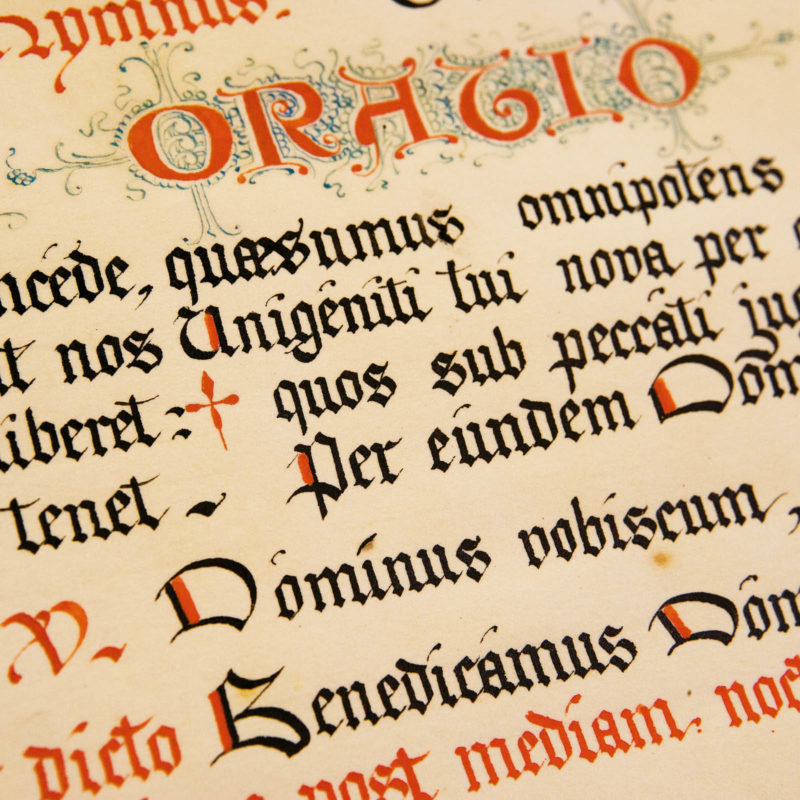 Hymnus.
ORATIO
ncéde, quæsumus omnipotens
ut nos Unigéniti tui nova per
iberet: † quos sub peccáti jug
tenet. Per eúndem Dóm
℣. Dóminus vobíscum,
dicto Benedicámus Dóm
post mediam noct